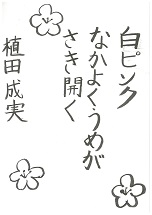 白ピンク
なかよくうめが
さき開く
植田成実